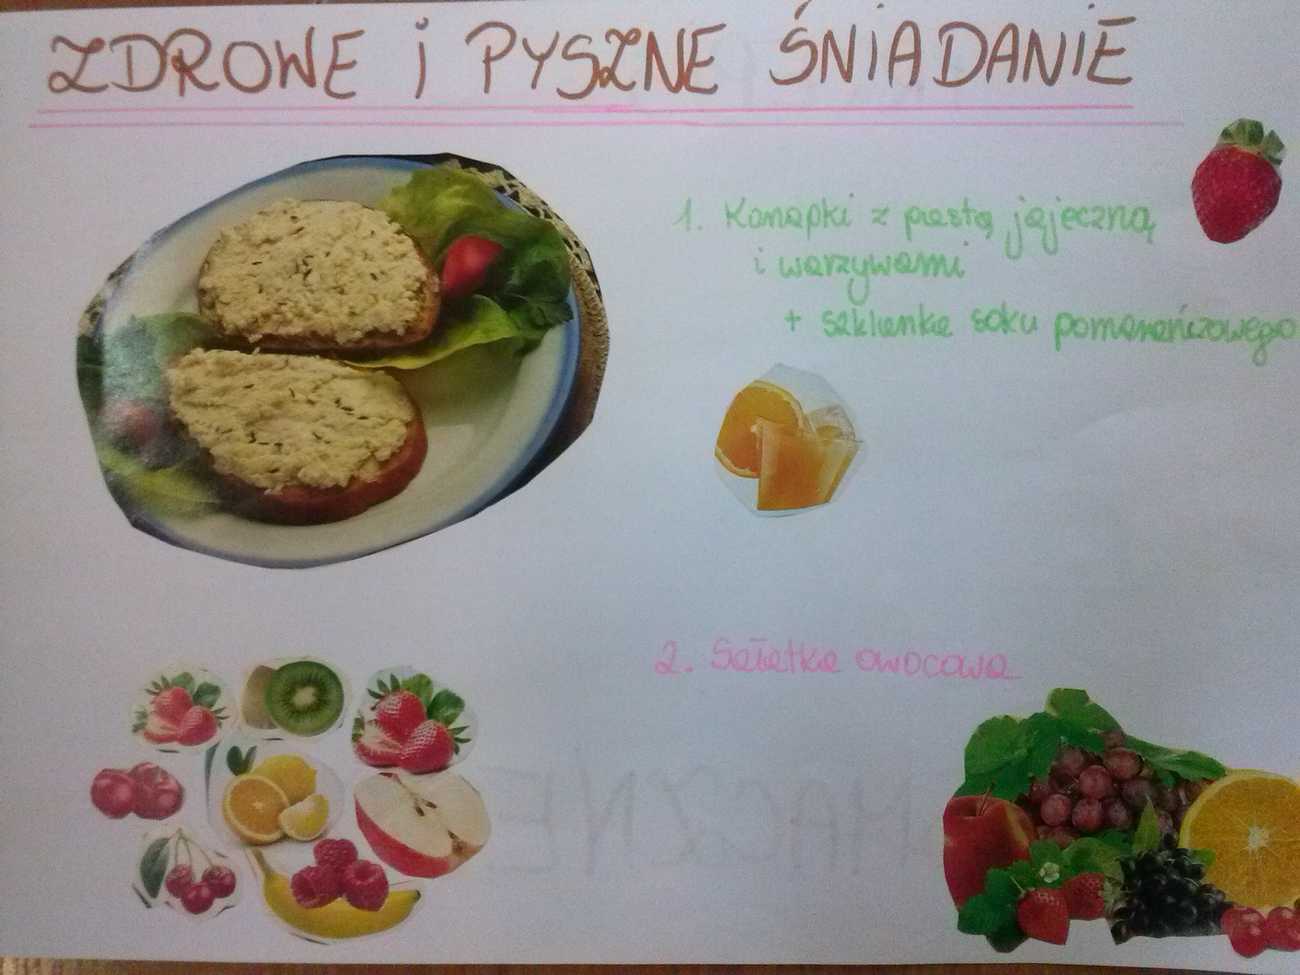 ZDROWE i PYSZNE ŚNIADANIE
1. Kanapki z pastą jajeczną
i warzywami
+ szklanka soku pomarańczowego
2. Sałatka owocowa